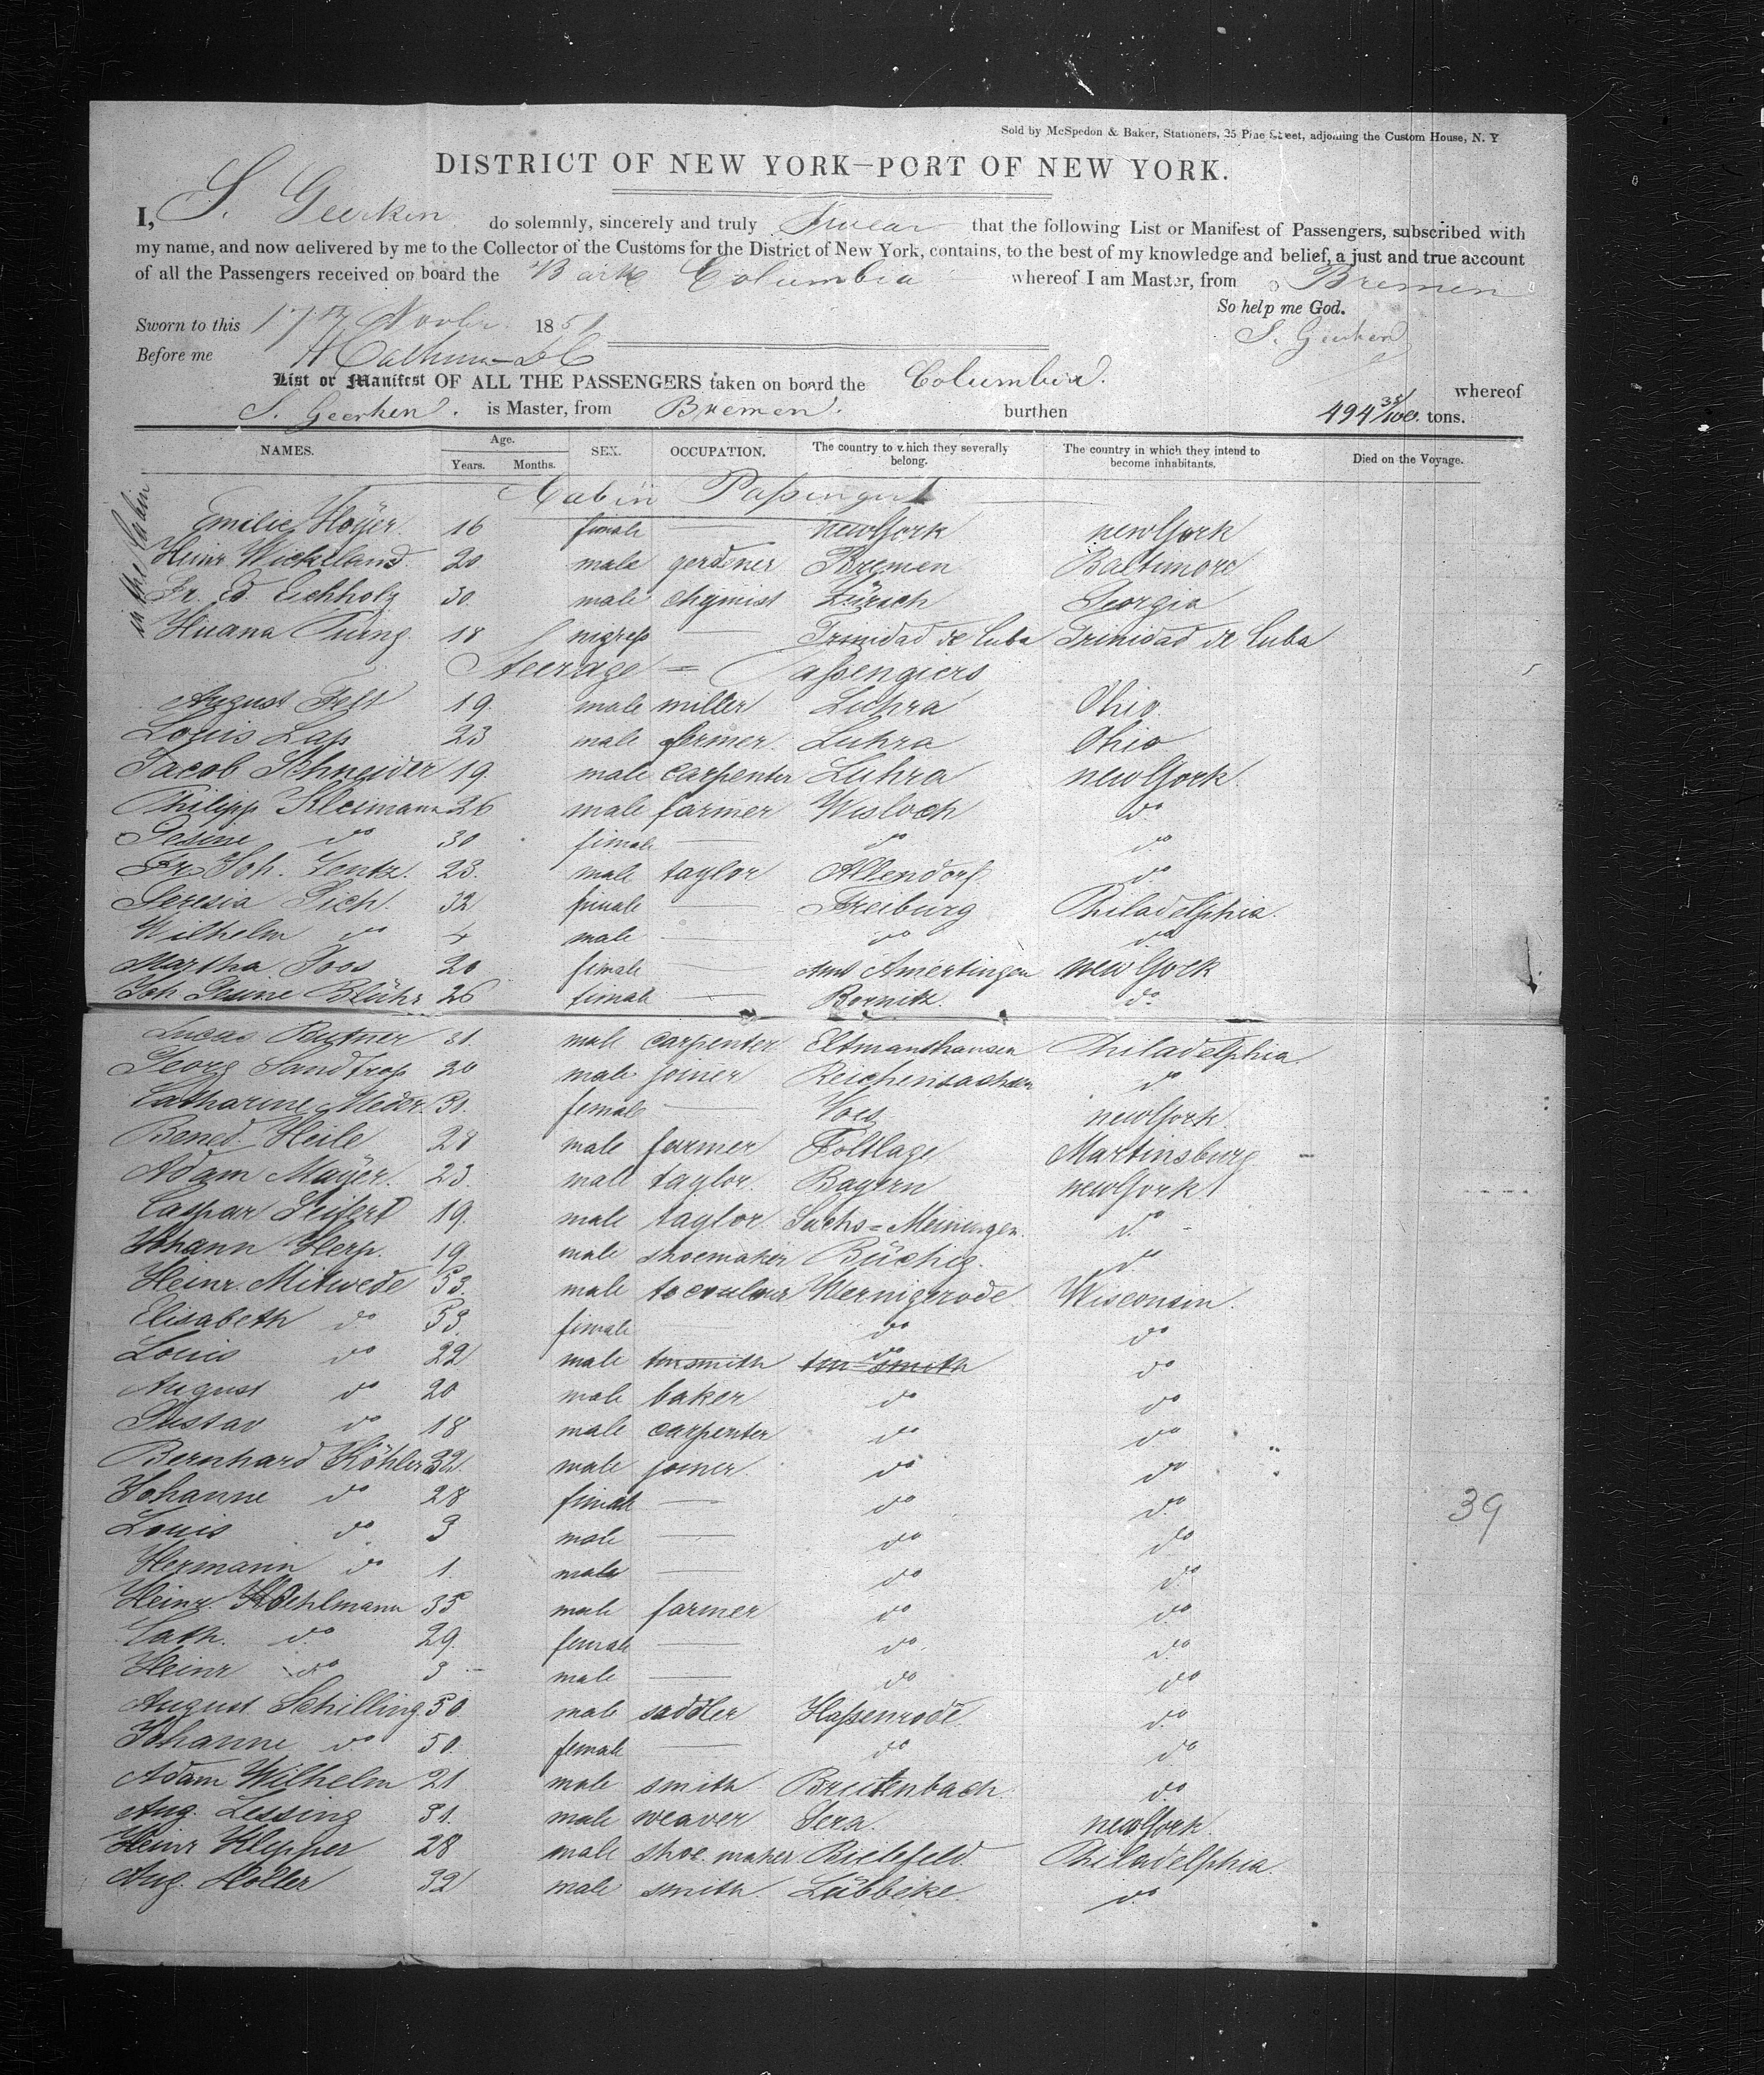 Sold by McSpedon & Baker, Stationers, 25 Pine Street, adjoining the Custom House, N. Y
DISTRICT OF NEW YORK—PORT OF NEW YORK.
I, S. Geerken do solemnly, sincerely and truly swear that the following List or Manifest of Passengers, subscribed with
my name, and now delivered by me to the Collector of the Customs for the District of New York, contains, to the best of my knowledge and belief, a just and true account
of all the Passengers received on board the Bark Columbia whereof I am Master, from Bremen
So help me God.
Sworn to this 17th Novbr 1851 S. Geerken
Before me
List or Manifest OF ALL THE PASSENGERS taken on board the Columbia. whereof
S. Geerken. is Master, from Bremen. burthen 494 35/100. tons.
NAMES. Age. Years. Months. SEX. OCCUPATION. The country to which they severally belong. The country in which they intend to become inhabitants. Died on the Voyage.
in the Cabin
Cabin Passengers
Emilie Hoÿer. 16 female newYork newYork
Heinr Wickeland. 20 male gerdener Bremen Baltimore
Fr. Ed. Eichholz 30. male chymist Zürich Georgia
Huana Turng. 18 nigress — Trinidad de Cuba Trinidad de Cuba
Steerage = Passengiers
August Felt 19. male miller Luhra Ohio
Louis Lap 23 male farmer. Luhra Ohio
Jacob Schneider 19. male carpenter Luhra newYork.
Philipp Kleimann 26 male farmer Wisloch do
Gesine do 30 female — do do
Fr. Joh. Lentz. 23. male taylor Allendorf. do
Teresia Pich. 32 female — Freiburg Philadelphia.
Wilhelm do 4 male — do do
Martha Joos 20 female — Amt Amertingen newYork
Joh 26 female — Bornitz. do
Lucas Butner 31. male carpenter Eltmanshausen Philadelphia
Georg Sandtrop 20 male joiner Reichensachsen do
Catharine Meder. 30. female — newYork.
Bened. Heile 28 male farmer Foltlage Martinsburg
Adam Mayer. 23. male taylor. Bayern newYork
Caspar Seifert 19. male taylor. Sachs=Meiningen. do
Johann Herp. 19. male shoemaker Büchig. do
Heinr. Mitwede 53. male Wernigerode. Wisconsin.
Elisabeth do 53. female do do
Louis do 22 male tinsmith tin smith do do
August do 20 male baker do do
Gustav do 18 male carpenter do do
Bernhard Köhler 32. male joiner. do do
Johanne do 28 female — do do
Louis do 3 male — do do
Hermann do 1. male — do do
Heinr. Koehlmann 35 male farmer do do
Cath. do 29. female — do do
Heinr do 3 male — do do
August Schilling 50. male saddler Hassenrode. do
Johanne do 50. female — do do
Adam Wilhelm 21 male smith Breitenbach. do
Aug. Lessing 31. male weaver Gera. newYork.
Heinr Klepper 28 male shoe maker Bielefeld. Philadelphia.
Aug. Holler 32 male smith. Lübbeke. do
39